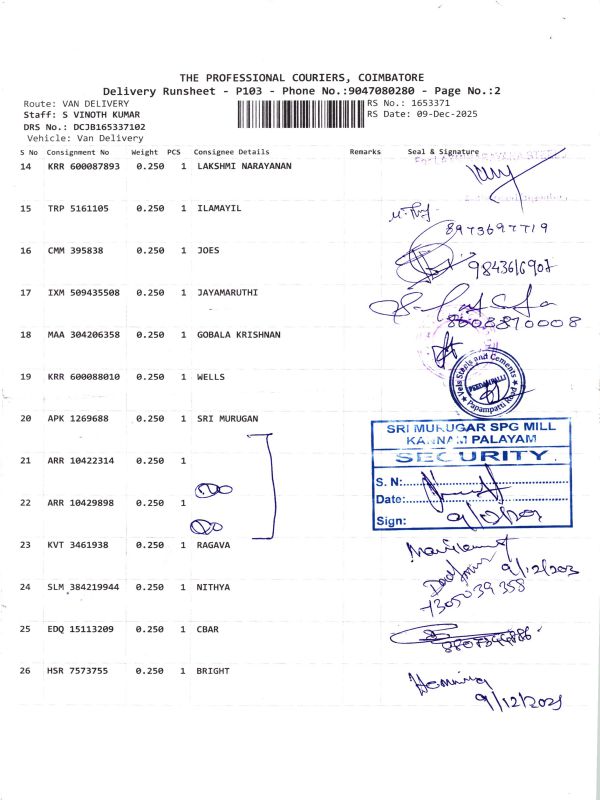 THE PROFESSIONAL COURIERS, COIMBATORE
Delivery Runsheet - P103 - Phone No.:9047080280 - Page No.:2
Route: VAN DELIVERY
RS No.: 1653371
Staff: S VINOTH KUMAR
RS Date: 09-Dec-2025
DRS No.: DCJB165337102
Vehicle: Van Delivery
S No Consignment No Weight PCS Consignee Details Remarks Seal & Signature
14 KRR 600087893 0.250 1 LAKSHMI NARAYANAN
15 TRP 5161105 0.250 1 ILAMAYIL
8973697719
16 CMM 395838 0.250 1 JOES
9843616907
17 IXM 509435508 0.250 1 JAYAMARUTHI
8608870008
18 MAA 304206358 0.250 1 GOBALA KRISHNAN
19 KRR 600088010 0.250 1 WELLS
Vels Steels and Cements
PEEDAMPALLI
Papampatti Road
20 APK 1269688 0.250 1 SRI MURUGAN
SRI MURUGAR SPG MILL
KANNAM PALAYAM
SECURITY
S. N:
Date:
Sign:
21 ARR 10422314 0.250 1
22 ARR 10429898 0.250 1
23 KVT 3461938 0.250 1 RAGAVA
24 SLM 384219944 0.250 1 NITHYA
7305039358
25 EDQ 15113209 0.250 1 CBAR
26 HSR 7573755 0.250 1 BRIGHT
9/12/2025